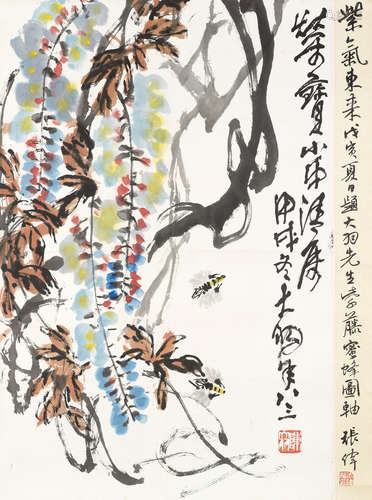 紫氣東來戊寅夏日題大羽先生紫藤蜜蜂圖軸 張偉
榮寶小弟清屬
甲戌冬大羽年八三